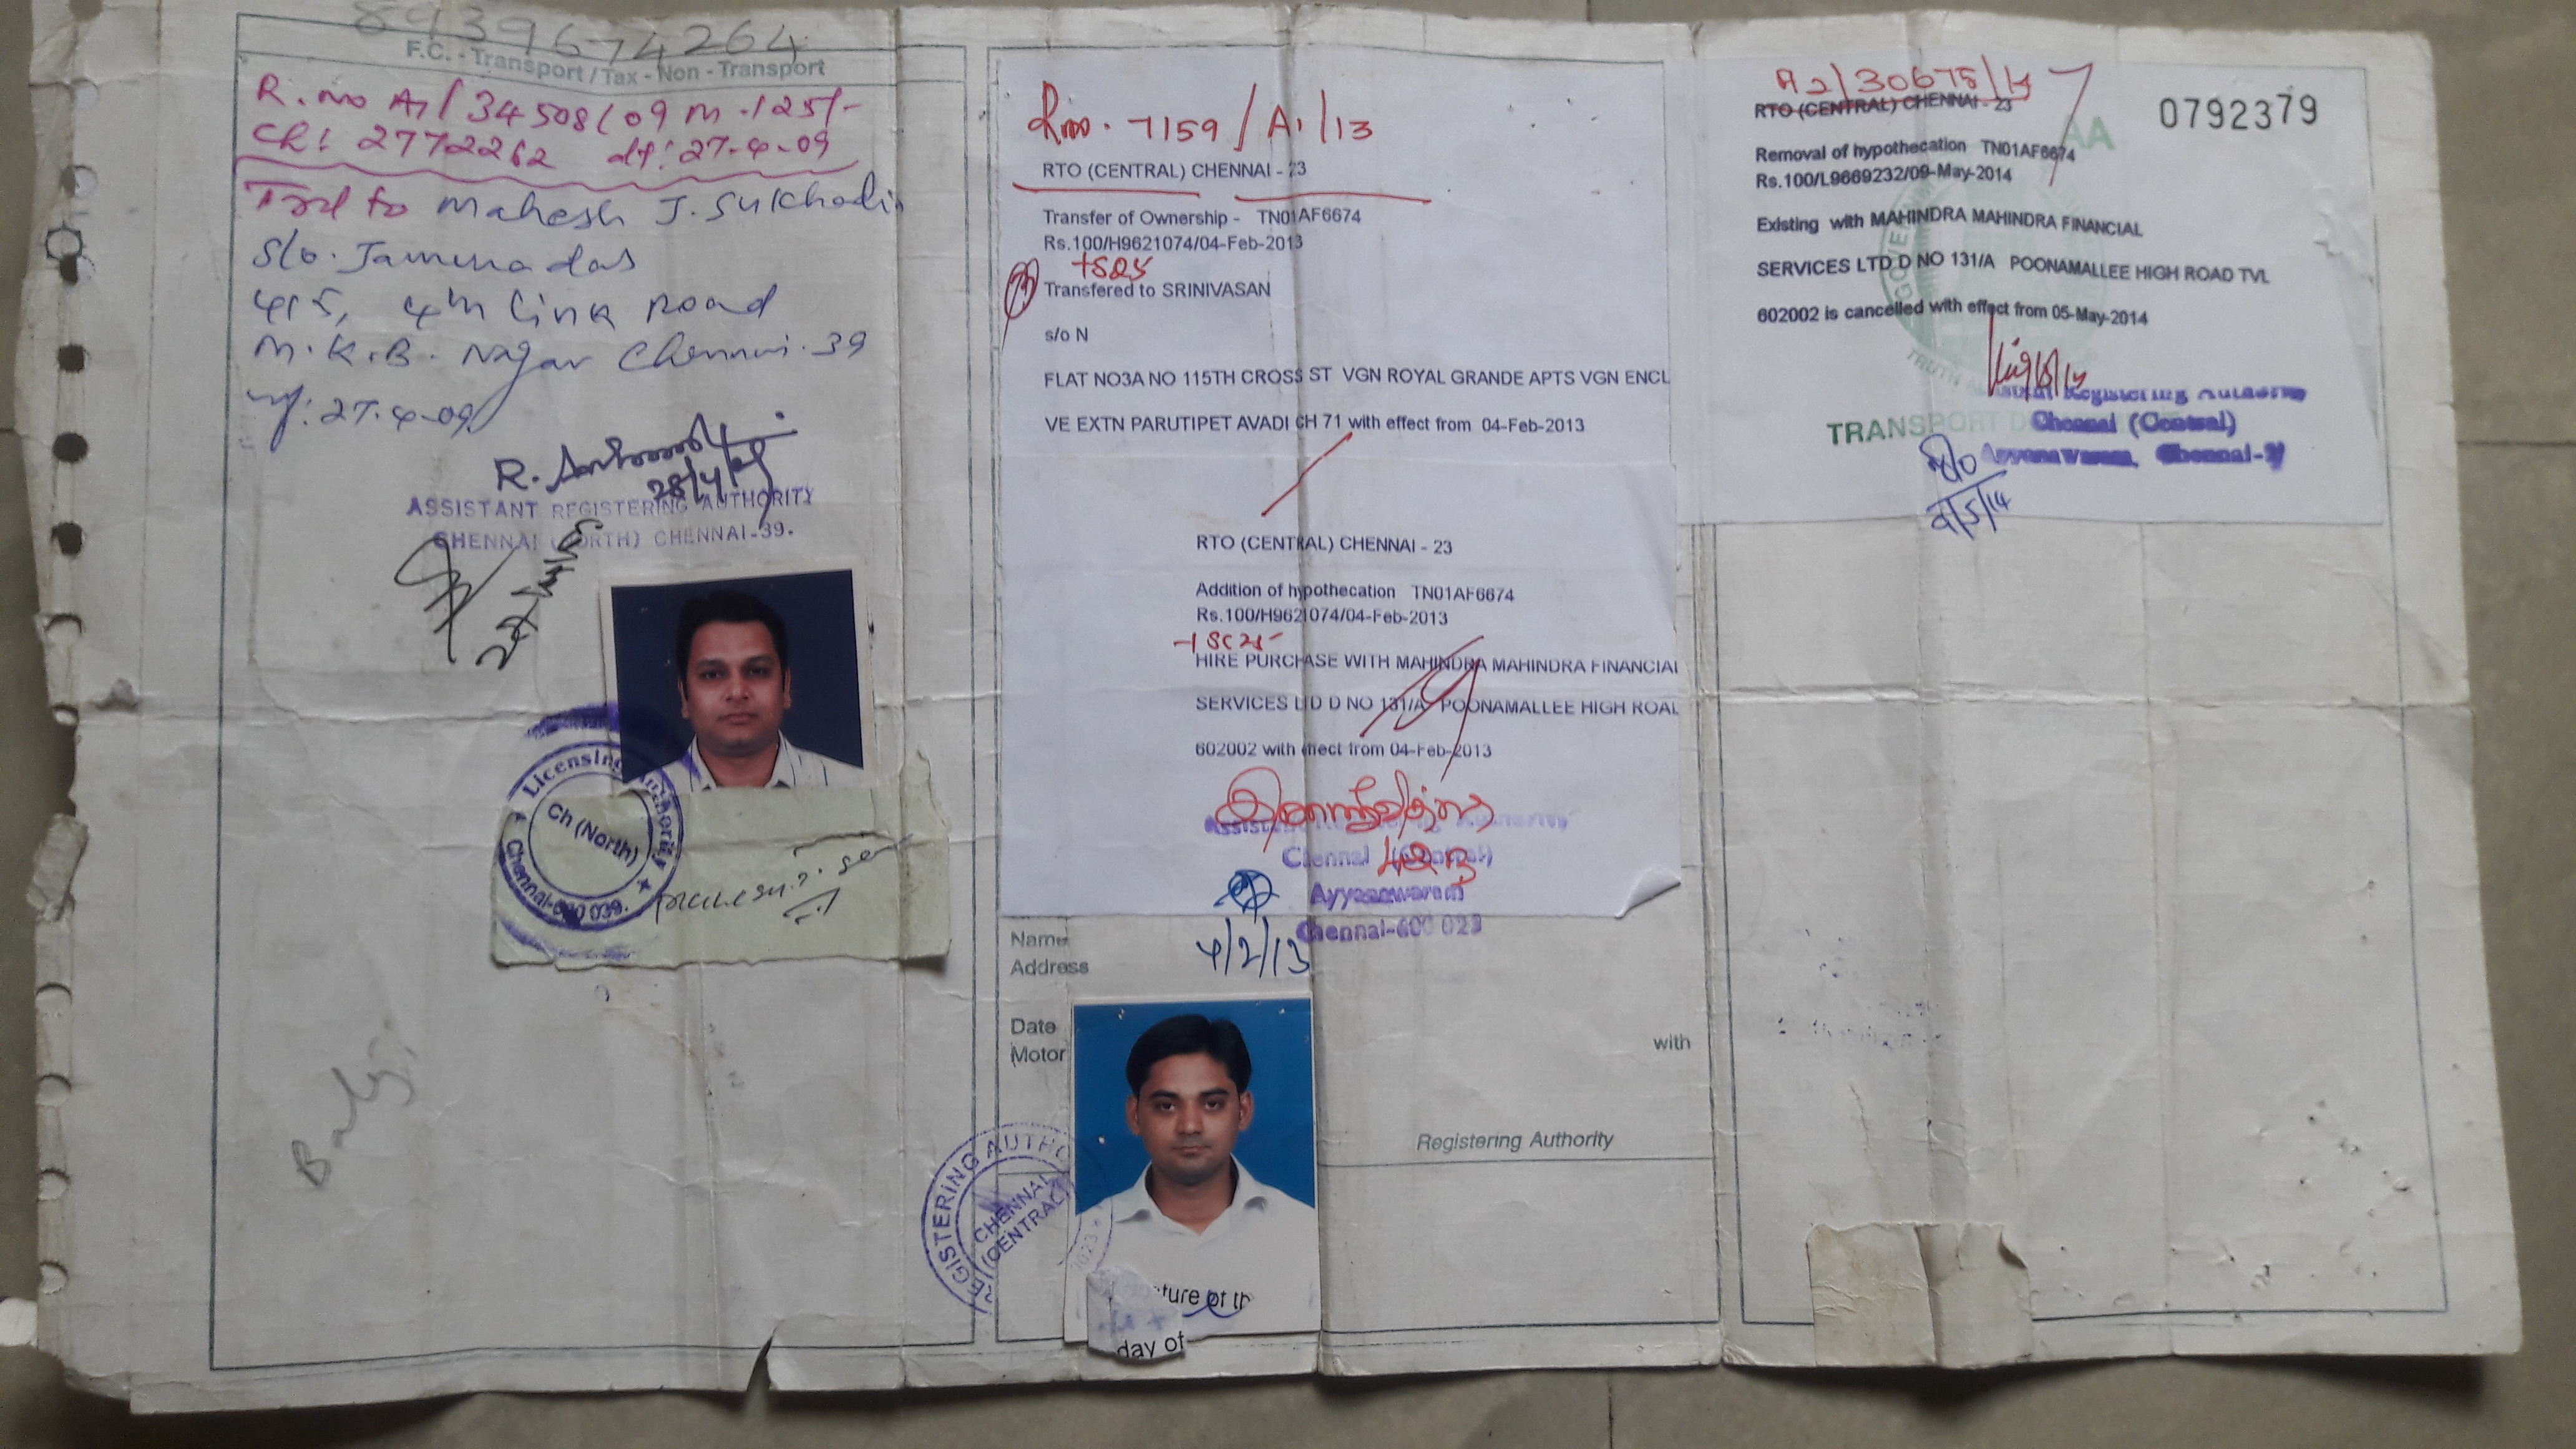 8139674264
F.C. - Transport / Tax - Non - Transport
R. no A7/34508/09 M.125/-
CR: 2772262 dt: 27.4.09
Tfrd to Mahesh J. Sulchadin
S/o. Jamunadas
45, 4th Link Road
M.K.B. Nagar Chennai.39
27.4.09
28/4/09
ASSISTANT REGISTERING AUTHORITY
CHENNAI (NORTH) CHENNAI-39.
Licensing Authority
Ch (North)
Chennai-600 039.
7159/A1/13
RTO (CENTRAL) CHENNAI - 23
Transfer of Ownership - TN01AF6674
Rs.100/H9621074/04-Feb-2013
Transfered to SRINIVASAN
s/o N
FLAT NO3A NO 115TH CROSS ST VGN ROYAL GRANDE APTS VGN ENCL
VE EXTN PARUTIPET AVADI CH 71 with effect from 04-Feb-2013
RTO (CENTRAL) CHENNAI - 23
Addition of hypothecation TN01AF6674
Rs.100/H9621074/04-Feb-2013
HIRE PURCHASE WITH MAHINDRA MAHINDRA FINANCIAL
SERVICES LTD D NO 131/A POONAMALLEE HIGH ROAD
602002 with effect from 04-Feb-2013
Ayyanavaram
Chennai-600 023
4/2/13
Name
Address
Date
Motor
with
Registering Authority
REGISTERING AUTHO
CHENNAI
(CENTRAL)
ture of th
day of
A2/30675/14
RTO (CENTRAL) CHENNAI - 23
Removal of hypothecation TN01AF6674
Rs.100/L9669232/09-May-2014
Existing with MAHINDRA MAHINDRA FINANCIAL
SERVICES LTD D NO 131/A POONAMALLEE HIGH ROAD TVL
602002 is cancelled with effect from 05-May-2014
AA
0792379
TRANSPORT
Chennai (Central)
Ayyanavaram, Chennai-